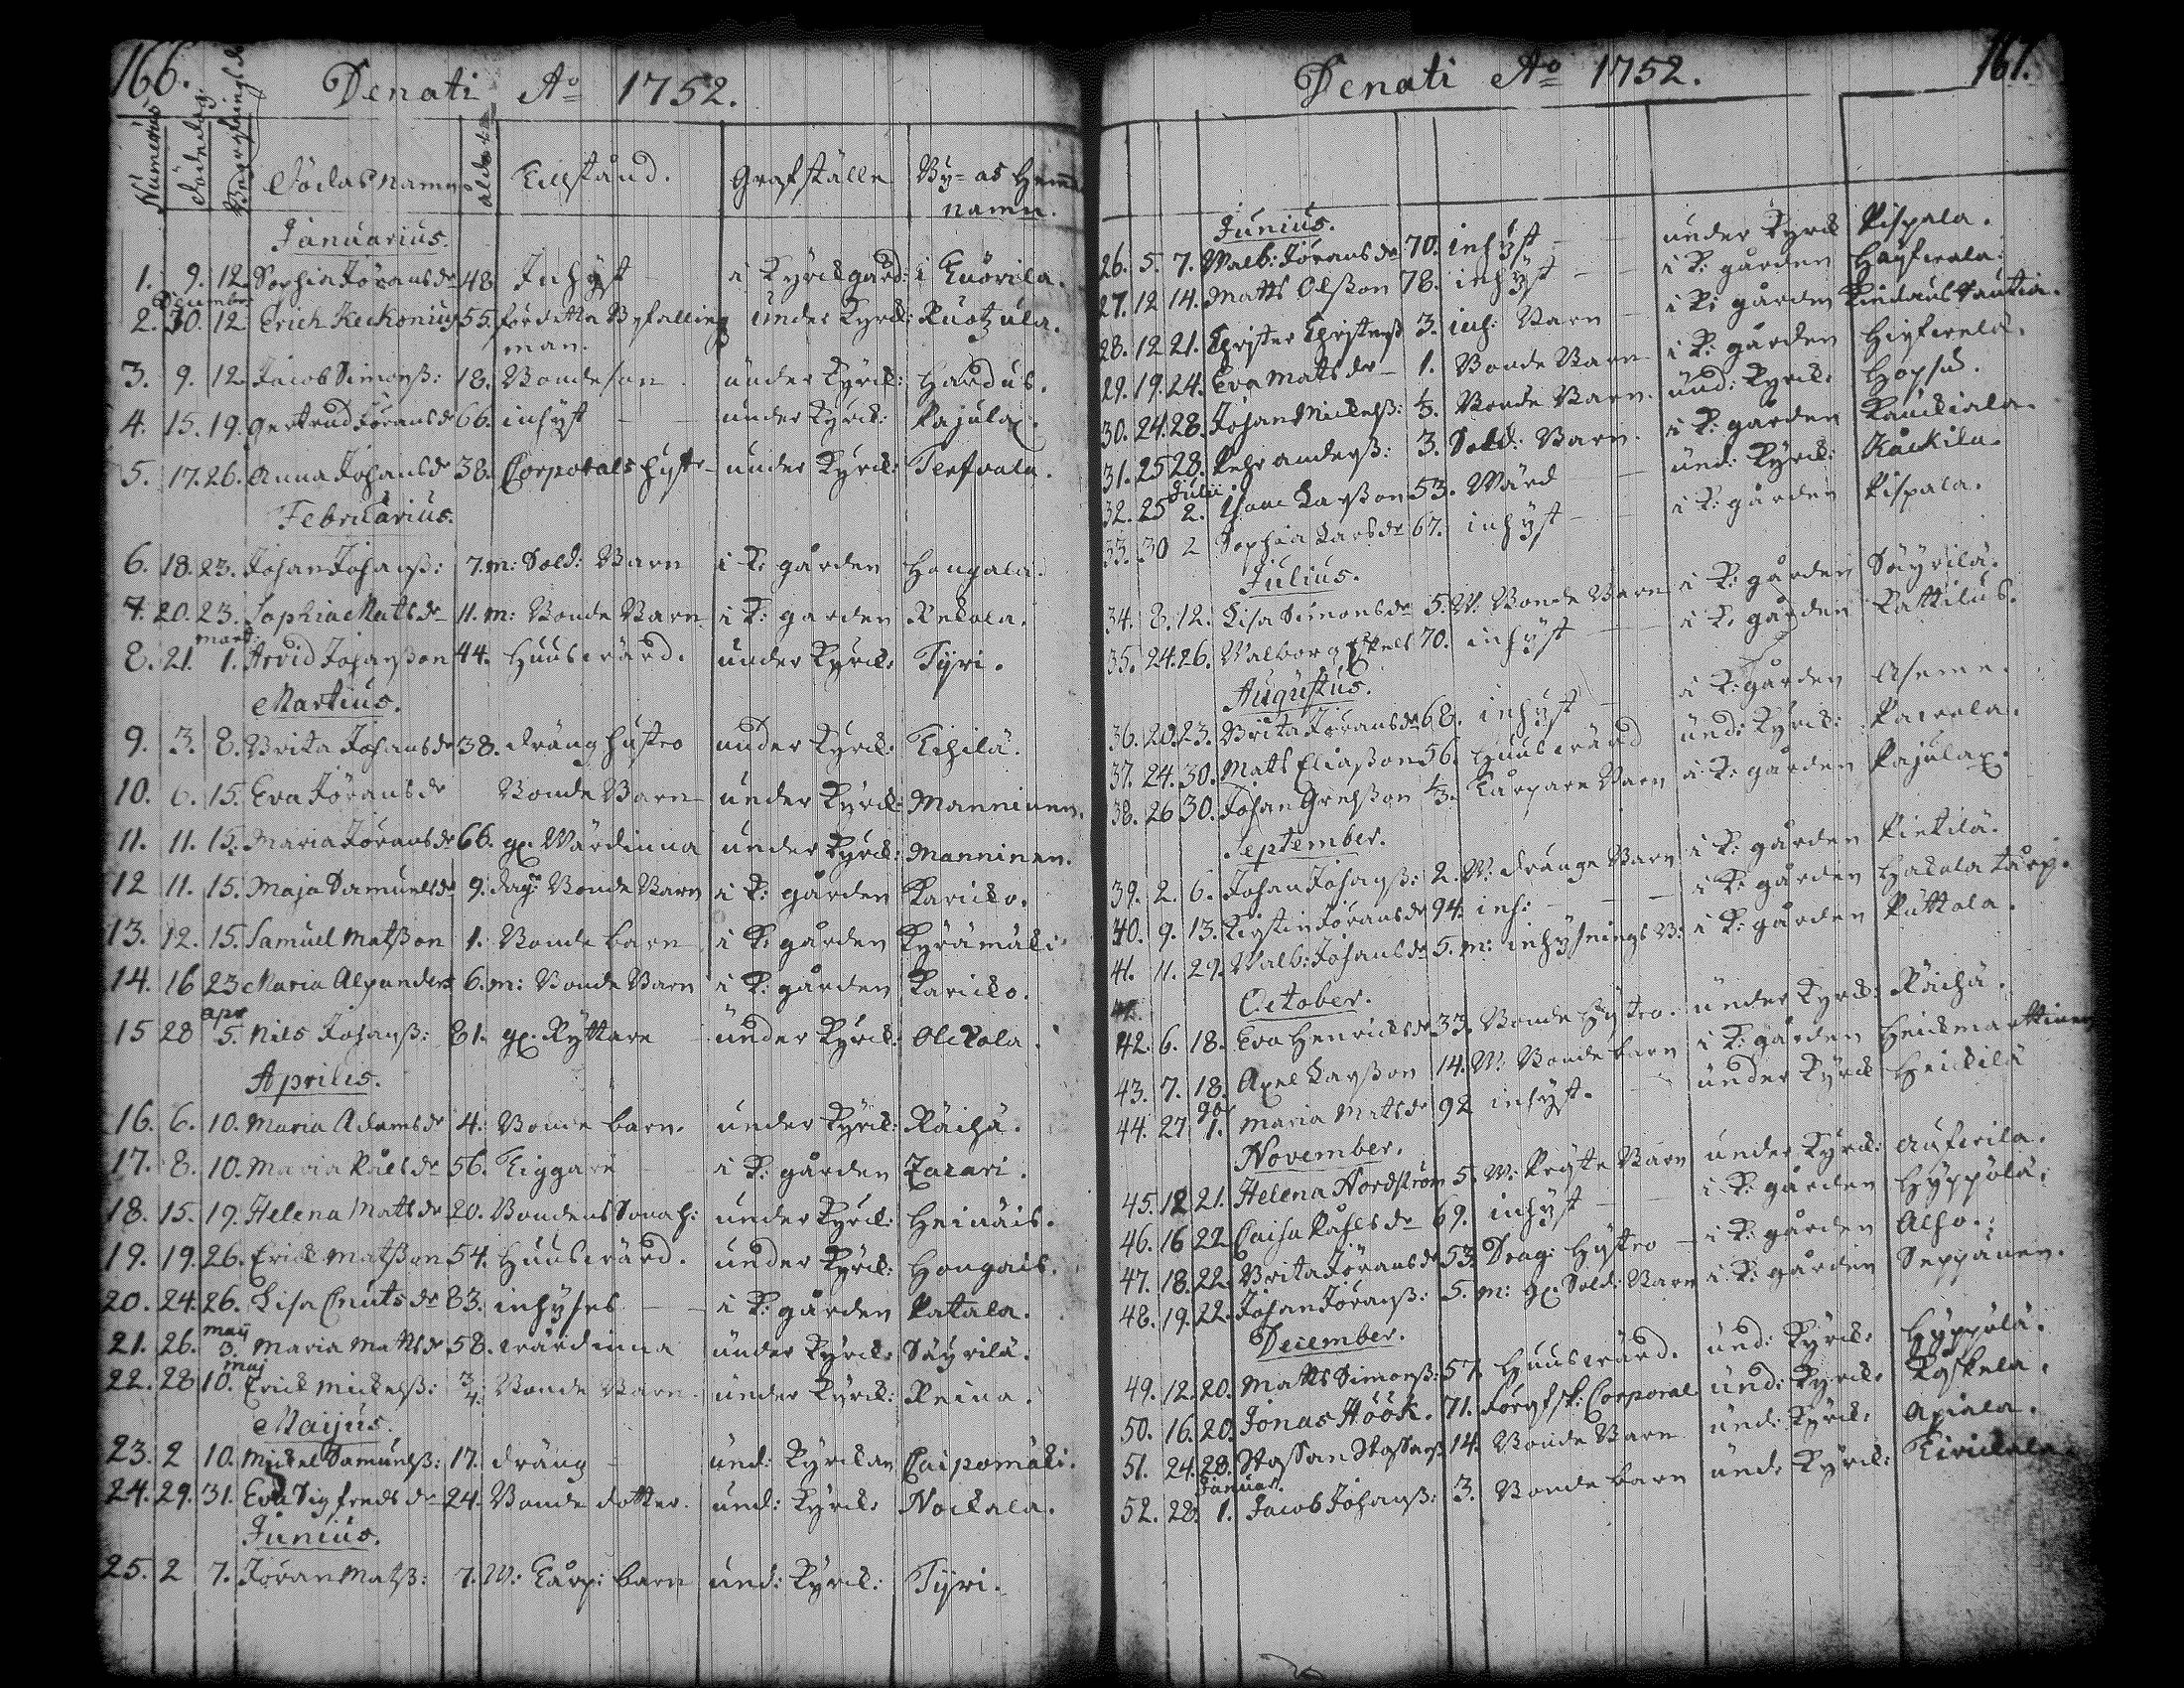 166.
Denati Aº 1752.
Numerus Dödedag. Begrafnings d.
Dödas namn ålder Tillstånd. Grafställe By- as Hem
namn.
Januarius.
1. 9. 12. Sophia Jöransdr 48 Inhyst i Kyrckgård: i Tuorila.
December
2. 30. 12 Erich Keckonius 55. för detta Befalling under Kyrck: Ruotzula.
man.
3. 9. 12. Jacob Simonss: 18. Bondeson under Kyrck: Haudus.
4. 15. 19. Gertrud Jöransdr 66. inhyst under Kyrck: Pajulax.
5. 17. 26. Anna Johansdr 38. Corporals hustr under Kyrck:
Februarius.
6. 18. 23. Johan Johanss: 7. m: Sold: Barn i K: gården Hongala.
7. 20. 23. Sophia Matsdr 11. m: Bonde Barn i K: gården Rekola.
mart:
8. 21. 1. Arvid Johansson 44. Huuswärd. under Kyrck: Tyri.
Martius.
9. 3. 8. Brita Johansdr 38. dräng hustro under Kyrck:
10. 6. 15. Eva Jöransdr Bonde Barn under Kyrck: Manninen.
11. 11. 15. Maria Jöransdr 66. gl. Wärdinna under Kyrck: Manninen.
12 11. 15. Maja Samuelsdr 9. dag: Bonde Barn i K: gården Karicko.
13. 12. 15. Samuel Matsson 1. Bonde barn i K: gården Kyrämäki
14. 16 23 Maria Alexanders 6. m: Bonde Barn i K: gården Karicko.
apr
15 28 5. Nils Johanss: 81. gl. Ryttare under Kyrck: Olckola.
Aprilis.
16. 6. 10. Maria Adamsdr 4. Bonde barn. under Kyrck: Räihä.
17. 8. 10. Maria Påls dr 56. Tiggare i K: gården Zacari.
18. 15. 19. Helena Mattsdr 20. Bondens Sona h: under Kyrck: Heinäis.
19. 19. 26. Erick Matsson 54. Huuswärd. under Kyrck: Hongais.
20. 24. 26. Lisa Cnutsdr 83. inhyses i K: gården Patala.
maij
21. 26. 3. Maria Mattsdr 58. wärdinna under Kyrck: Säyrilä.
maj
22. 28 10. Erick Mickelss: 3/4. Bonde Barn. under Kyrck: Reina.
Maijus.
23. 2 10. Mickel Samuelss: 17. dräng und: Kyrckan Caipomäki.
24. 29. 31. Eva Sigfredsdr 24. Bonde dotter. und: Kyrck: Nockala.
Junius.
25. 2 7. Jöran Matss: 7. W: Tårp: barn und: Kyrck: Tyri.
Denati Aº 1752. 167.
Junius.
26. 5. 7. Walb: Jöransdr 70. inhyst under Kyrck Pispala.
27. 12 14. Matts Olsson 78. inhyst i K: gården
28. 12 21. Christer Christerss 3. inh: Barn i K: gården
29. 19. 24. Eva Matsdr 1. Bonde Barn i K: gården
30. 24. 28. Johan Mickelss: 1/3. Bonde Barn. und: Kyrck: Hopsu.
31. 25 28. Pehr Anderss: 3. Sold: Barn. i K: gården Kauckiala.
Julii.
32. 25 2. Isaac Larsson 53. Wärd und: Kyrck: Kåckila.
33. 30 2 Sophia Larsdr 67. inhyst i K: gården Pispala.
Julius.
34. 8. 12. Lisa Simonsdr 5. W: Bonde Barn i K: gården Säyrilä.
35. 24. 26. Walborg Eskels 70. inhyst i K: gården Pattilus.
Augustus.
36. 20. 23. Brita Jöransdr 68. inhyst i K: gården Aseme.
37. 24. 30. Matts Eliasson 56. Huuswärd und: Kyrck: Pawola.
38. 26 30. Johan Grelsson 1/3. Tårpare Barn i K: gården Pajulax.
September.
39. 2. 6. Johan Johanss: 2. W: dränge Barn i K: gården Pietilä.
40. 9. 13. Kirstin Jöransdr 94. inh: i K: gården Hakola tårp.
41. 11. 29. Walb: Johansdr 5. m: inhysnings B: i K: gården Puttola.
October.
42. 6. 18. Eva Henricksdr 33. Bonde Hustro. under Kyrck: Räihä.
43. 7. 18. Axel Larsson 14. W: Bonde barn i K: gården Heickmarttinen
9br
44. 27 1. Maria Matsdr 92 inhyst. under Kyrck Heickilä
November.
45. 12 21. Helena Nordström 5. W: Barn under Kyrck:
46. 16 22 Caisa Påhlsdr 69. inhyst i K: gården Hyppölä.
47. 18. 22. Brita Jöransdr 53. Drag: Hustro i K: gården Alho.
48. 19. 22. Johan Jöranss: 5. m: gl. Sold: Barn i K: gården Seppänen.
December.
49. 12. 20. Matts Simonss: 57. Huuswärd. und: Kyrck: Hyppölä.
50. 16. 20. Jonas Höök. 71. Corporal und: Kyrck: Koskela.
51. 24. 28. Staffan Staffanss 14. Bonde Barn und: Kyrck: Apiala.
Januar.
52. 28. 1. Jacob Johanss: 3. Bonde barn und: Kyrck: